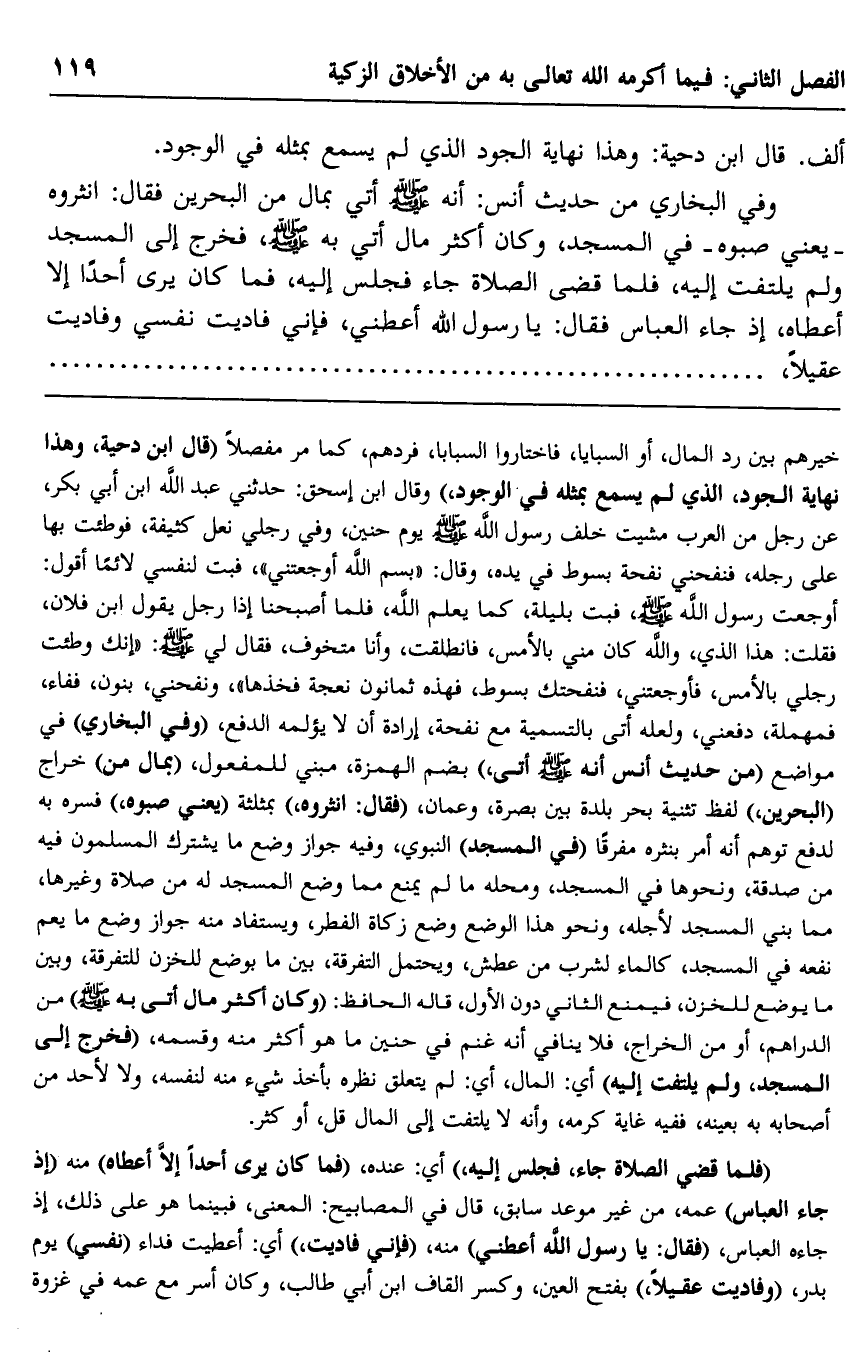 الفصل الثاني: فيما أكرمه الله تعالى به من الأخلاق الزكية ١١٩
ألف. قال ابن دحية: وهذا نهاية الجود الذي لم يسمع بمثله في الوجود.
وفي البخاري من حديث أنس: أنه ﷺ أتي بمال من البحرين فقال: انثروه
ـ يعني صبوه ـ في المسجد، وكان أكثر مال أتي به ﷺ، فخرج إلى المسجد
ولم يلتفت إليه، فلما قضى الصلاة جاء فجلس إليه، فما كان يرى أحدًا إلا
أعطاه، إذ جاء العباس فقال: يا رسول الله أعطني، فإني فاديت نفسي وفاديت
عقيلاً، ............................................................
خيرهم بين رد المال، أو السبايا، فاختاروا السبابا، فردهم، كما مر مفصلاً (قال ابن دحية، وهذا
نهاية الجود، الذي لم يسمع بمثله في الوجود،) وقال ابن إسحق: حدثني عبد الله ابن أبي بكر،
عن رجل من العرب مشيت خلف رسول اللَّه ﷺ يوم حنين، وفي رجلي نعل كثيفة، فوطئت بها
على رجله، فنفحني نفحة بسوط في يده، وقال: «بسم اللَّه أوجعتني»، فبت لنفسي لائمًا أقول:
أوجعت رسول اللَّه ﷺ، فبت بليلة، كما يعلم اللَّه، فلما أصبحنا إذا رجل يقول ابن فلان،
فقلت: هذا الذي، واللَّه كان مني بالأمس، فانطلقت، وأنا متخوف، فقال لي ﷺ: «إنك وطئت
رجلي بالأمس، فأوجعتني، فنفحتك بسوط، فهذه ثمانون نعجة فخذها»، ونفحني، بنون، ففاء،
فمهملة، دفعني، ولعله أتى بالتسمية مع نفحة، إرادة أن لا يؤلمه الدفع، (وفي البخاري) في
مواضع (من حديث أنس أنه ﷺ أتى،) بضم الهمزة، مبني للمفعول، (بمال من) خراج
(البحرين،) لفظ تثنية بحر بلدة بين بصرة، وعمان، (فقال: انثروه،) بمثلثة (يعني صبوه،) فسره به
لدفع توهم أنه أمر بنثره مفرقًا (في المسجد) النبوي، وفيه جواز وضع ما يشترك المسلمون فيه
من صدقة، ونحوها في المسجد، ومحله ما لم يمنع مما وضع المسجد له من صلاة وغيرها،
مما بني المسجد لأجله، ونحو هذا الوضع وضع زكاة الفطر، ويستفاد منه جواز وضع ما يعم
نفعه في المسجد، كالماء لشرب من عطش، ويحتمل التفرقة، بين ما بوضع للخزن للتفرقة، وبين
ما يوضع للخزن، فيمنع الثاني دون الأول، قاله الحافظ: (وكان أكثر مال أتى به ﷺ) من
الدراهم، أو من الخراج، فلا ينافي أنه غنم في حنين ما هو أكثر منه وقسمه، (فخرج إلى
المسجد، ولم يلتفت إليه) أي: المال، أي: لم يتعلق نظره بأخذ شيء منه لنفسه، ولا لأحد من
أصحابه به بعينه، ففيه غاية كرمه، وأنه لا يلتفت إلى المال قل، أو كثر.
(فلما قضي الصلاة جاء، فجلس إليه،) أي: عنده، (فما كان يرى أحداً إلاَّ أعطاه) منه (إذ
جاء العباس) عمه، من غير موعد سابق، قال في المصابيح: المعنى، فبينما هو على ذلك، إذ
جاءه العباس، (فقال: يا رسول اللَّه أعطني) منه، (فإني فاديت،) أي: أعطيت فداء (نفسي) يوم
بدر، (وفاديت عقيلاً،) بفتح العين، وكسر القاف ابن أبي طالب، وكان أسر مع عمه في غزوة